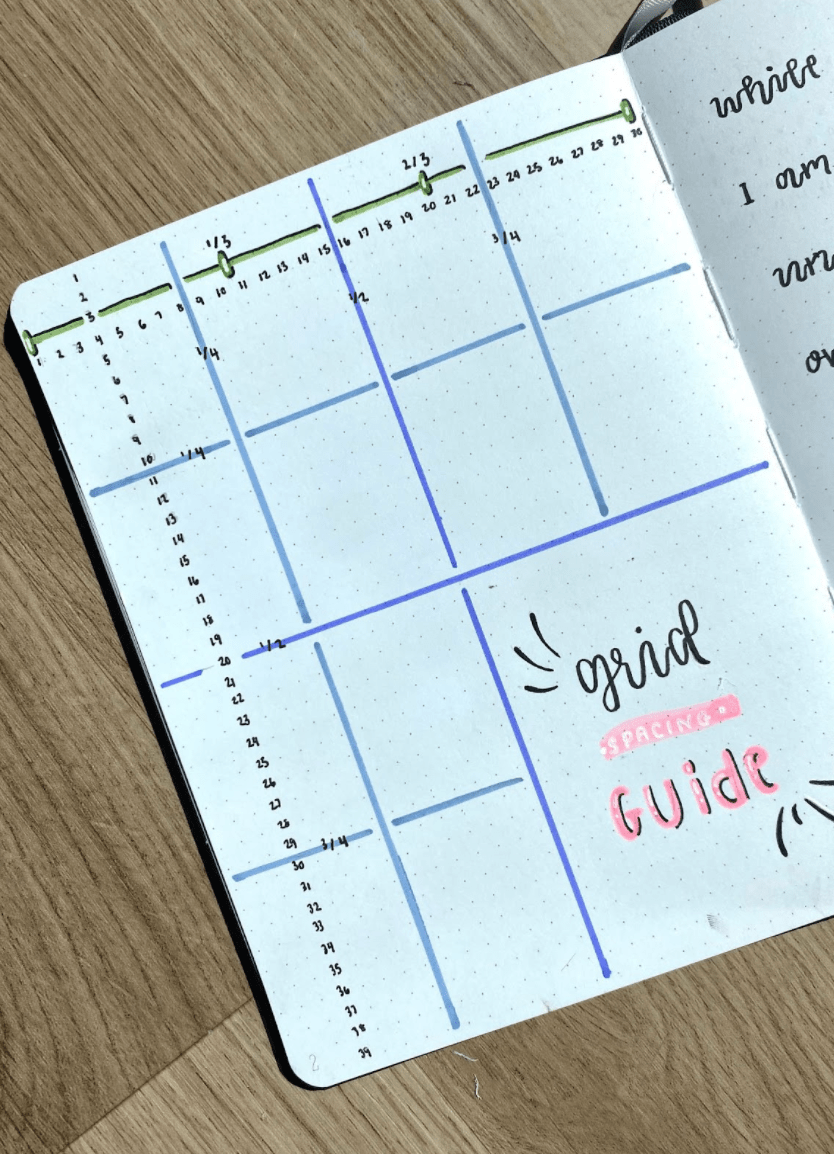 1/3 2/3
1 2 3 4 5 6 7 8 9 10 11 12 13 14 15 16 17 18 19 20 21 22 23 24 25 26 27 28 29 30
1/4 1/2 3/4
1
2
3
4
5
6
7
8
9
10 1/4
11
12
13
14
15
16
17
18
19
20 1/2
21
22
23
24
25
26
27
28
29 3/4
30
31
32
33
34
35
36
37
38
39
2
grid
SPACING
GUide
while
I am